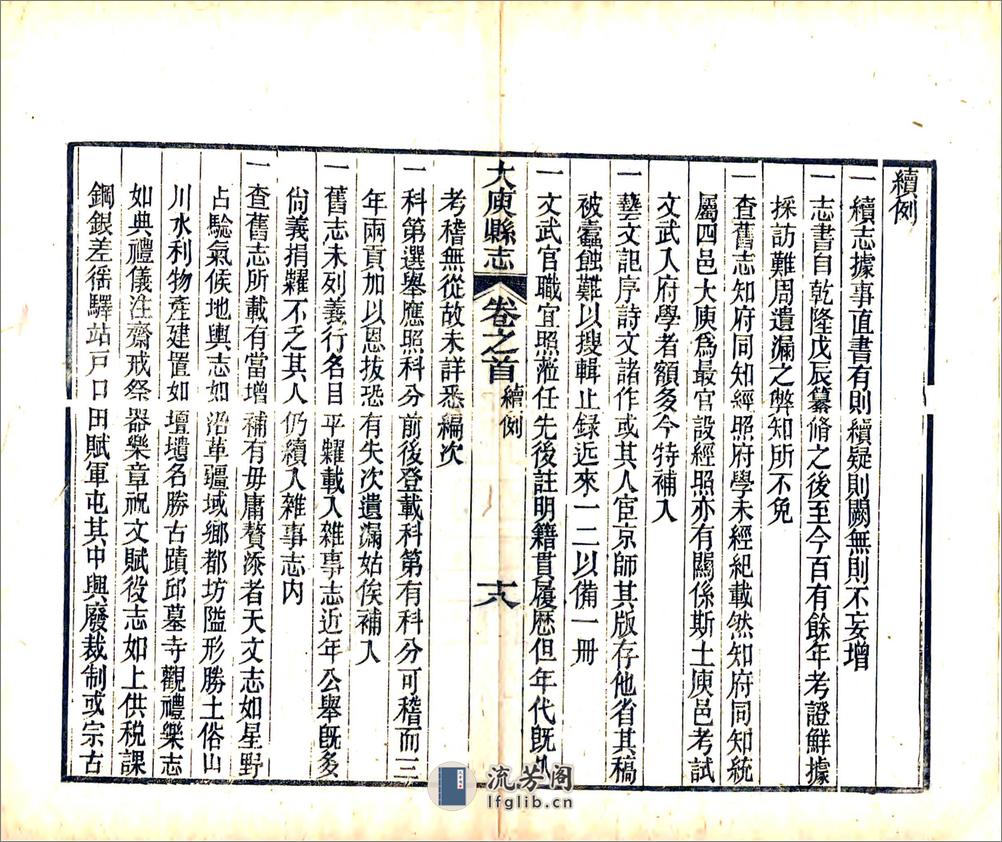 續例
一續志據事直書有則續疑則闕無則不妄增
一志書自乾隆戊辰纂脩之後至今百有餘年考證鮮據
採訪難周遺漏之弊知所不免
一查舊志知府同知經照府學未經紀載然知府同知統
屬四邑大庾爲最官設經照亦有關係斯土庾邑考試
文武入府學者額多今特補入
一藝文記序詩文諸作或其人宦京師其版存他省其稿
被蠹蝕難以搜輯止録近來一二以備一冊
一文武官職宜照蒞任先後註明籍貫履歷但年代既久
大庾縣志
卷之首
續例
十八
考稽無從故未詳悉編次
一科第選舉應照科分前後登載科第有科分可稽而三
年兩貢加以恩拔恐有失次遺漏姑俟補入
一舊志未列義行名目平糶載入雜事志近年公舉旣多
尙義捐糶不乏其人仍續入雜事志内
一查舊志所載有當增補有毋庸贅添者天文志如星野
占驗氣候地輿志如沿革疆域鄉都坊隘形勝土俗山
川水利物產建置如壇壝名勝古蹟邱墓寺觀禮樂志
如典禮儀注齋戒祭器樂章祝文賦役志如上供税課
鋼銀差徭驛站戸口田賦軍屯其中興廢裁制或宗古
流芳阁
lfglib.cn